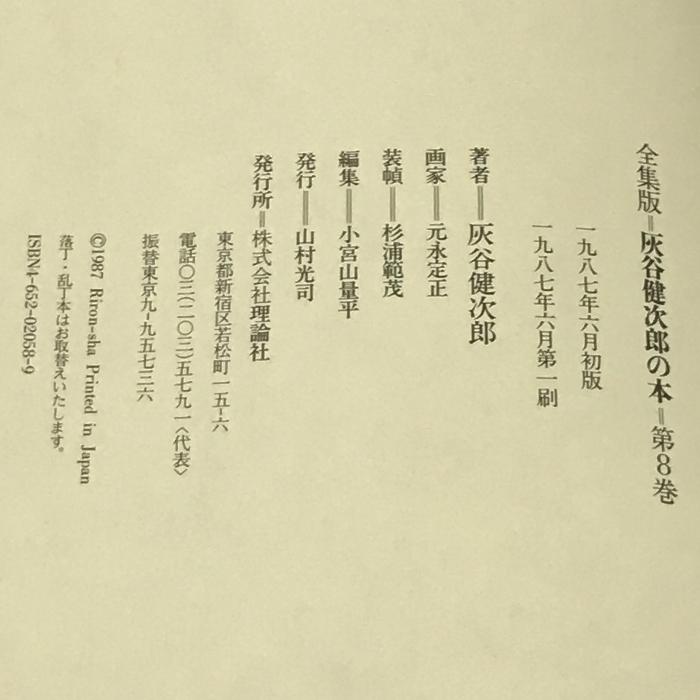 全集版=灰谷健次郎の本=第8巻
一九八七年六月初版
一九八七年六月第一刷
著者=灰谷健次郎
画家=元永定正
装幀=杉浦範茂
編集=小宮山量平
発行=山村光司
発行所=株式会社理論社
東京都新宿区若松町一五-六
電話〇三(二〇三)五七九一〈代表〉
振替東京九-九五七三六
©1987 Riron-sha Printed in Japan
落丁・乱丁本はお取替えいたします。
ISBN4-652-02058-9